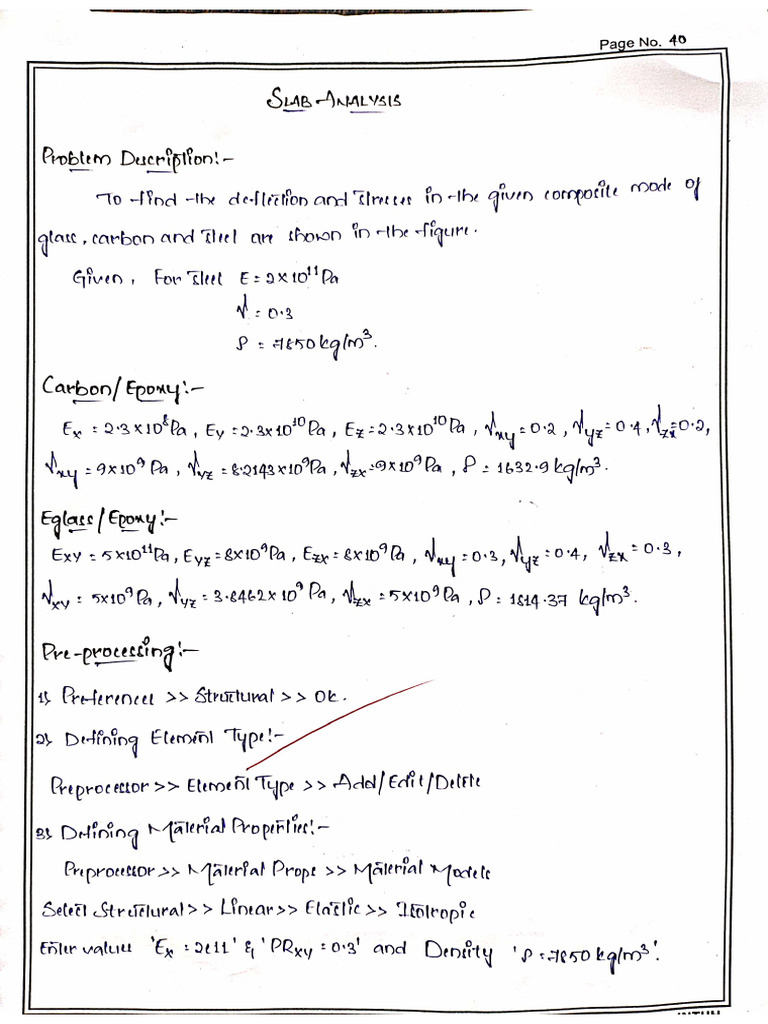 Page No. 40
SLAB ANALYSIS
Problem Description:-
To find the deflection and stresses in the given composite mode of
glass, carbon and steel are shown in the figure.
Given, For steel E = 2×10¹¹ Pa
ν = 0.3
ρ = 7850 kg/m³.
Carbon/Epoxy:-
Ex = 2.3×10⁸ Pa, Ey = 2.3×10¹⁰ Pa, Ez = 2.3×10¹⁰ Pa, νxy = 0.2, νyz = 0.4, νzx = 0.2,
νxy = 9×10⁹ Pa, νyz = 8.2143×10⁹ Pa, νzx = 9×10⁹ Pa, ρ = 1632.9 kg/m³.
Eglass/Epoxy:-
Exy = 5×10¹¹ Pa, Eyz = 8×10⁹ Pa, Ezx = 8×10⁹ Pa, νxy = 0.3, νyz = 0.4, νzx = 0.3,
νxy = 5×10⁹ Pa, νyz = 3.8462×10⁹ Pa, νzx = 5×10⁹ Pa, ρ = 1814.37 kg/m³.
Pre-processing:-
1) Preferences >> Structural >> Ok.
2) Defining Element Type:-
Preprocessor >> Element Type >> Add/Edit/Delete
3) Defining Material Properties:-
Preprocessor >> Material Props >> Material Models
Select Structural >> Linear >> Elastic >> Isotropic
Enter values 'Ex = 2e11' & 'PRxy = 0.3' and Density 'ρ = 7850 kg/m³'.